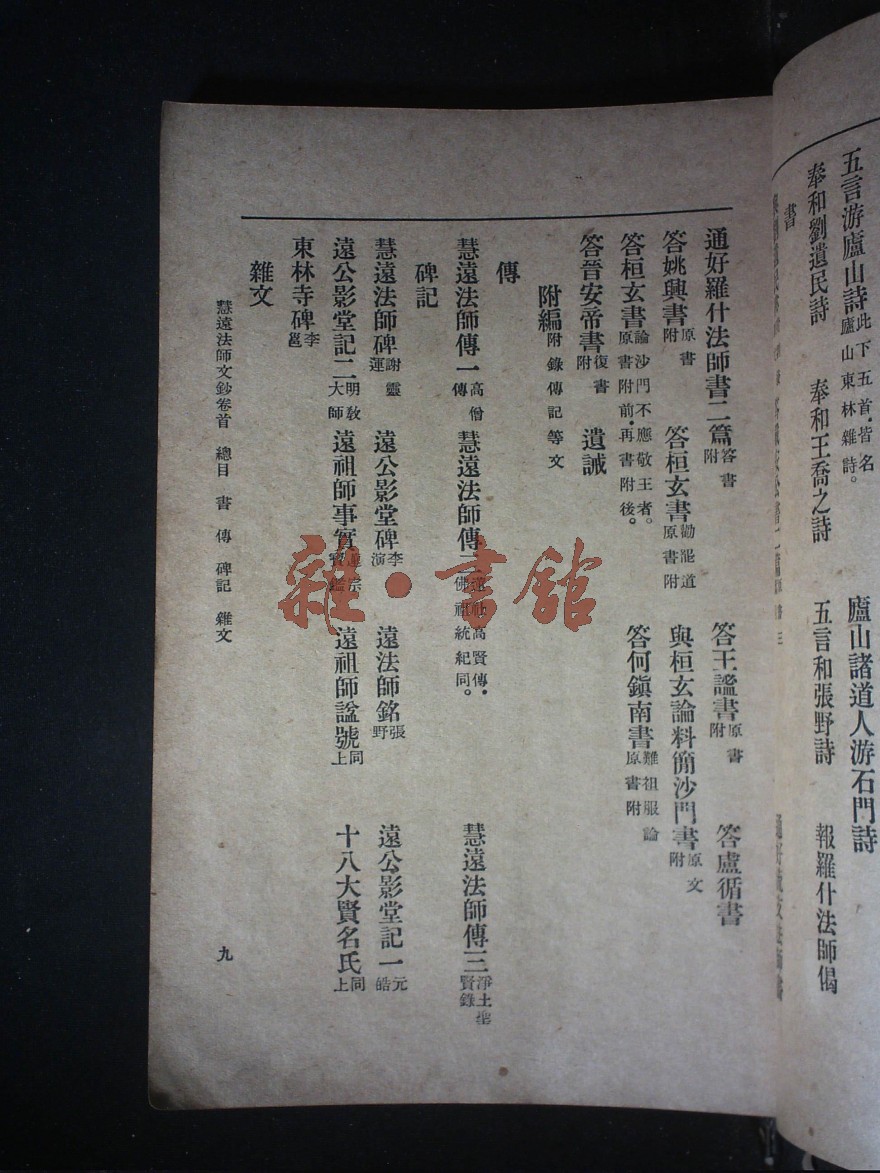 五言游廬山詩 此下五首，皆名廬山東林雜詩。 廬山諸道人游石門詩
奉和劉遺民詩 奉和王喬之詩 五言和張野詩 報羅什法師偈
書
通好羅什法師書二篇 答書附 答王謐書 原書附 答盧循書
答姚興書 原書附 答桓玄書 勸罷道原書附 與桓玄論料簡沙門書 原文附
答桓玄書 論沙門不應敬王者。原書附前，再書附後。 答何鎮南書 難袒服論原書附
答晉安帝書 復書附 遺誡
附編 附錄傳記等文
傳
慧遠法師傳一 高僧傳 慧遠法師傳二 蓮社高賢傳，佛祖統紀同。 慧遠法師傳三 淨土聖賢錄
碑記
慧遠法師碑 謝靈運 遠公影堂碑 李演 遠法師銘 張野 遠公影堂記一 元皓
遠公影堂記二 明教大師 遠祖師事實 蓮宗寶鑑 遠祖師諡號 同上 十八大賢名氏 同上
東林寺碑 李邕
雜文
慧遠法師文鈔卷首 總目 書 傳 碑記 雜文 九
雜·書館